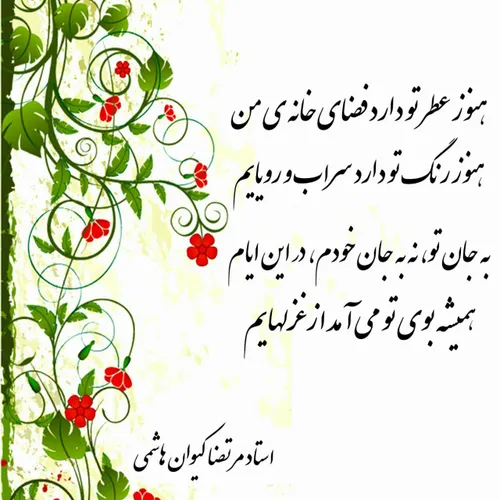 هنوز عطر تو دارد فضای خانه ی من
هنوز رنگ تو دارد سراب و رویایم
به جان تو، نه به جان خودم، در این ایام
همیشه بوی تو می آمد از غزلهایم
استاد مرتضا کیوان هاشمی